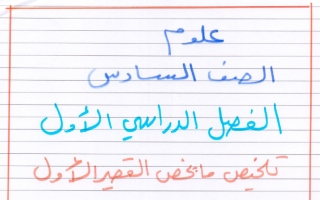 علوم
الصف السادس
الفصل الدراسي الأول
تلخيص ما يخص القصير الأول